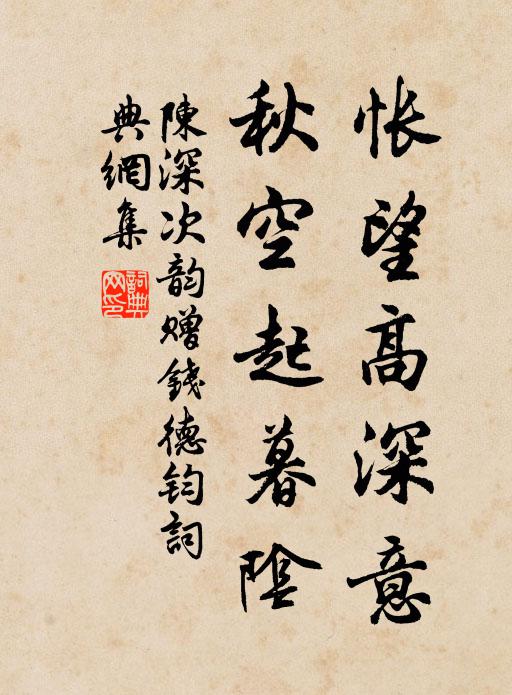 悵望高深意
秋空起暮陰
陳深次韵贈錢德鈞詞
典網集
詞典网印